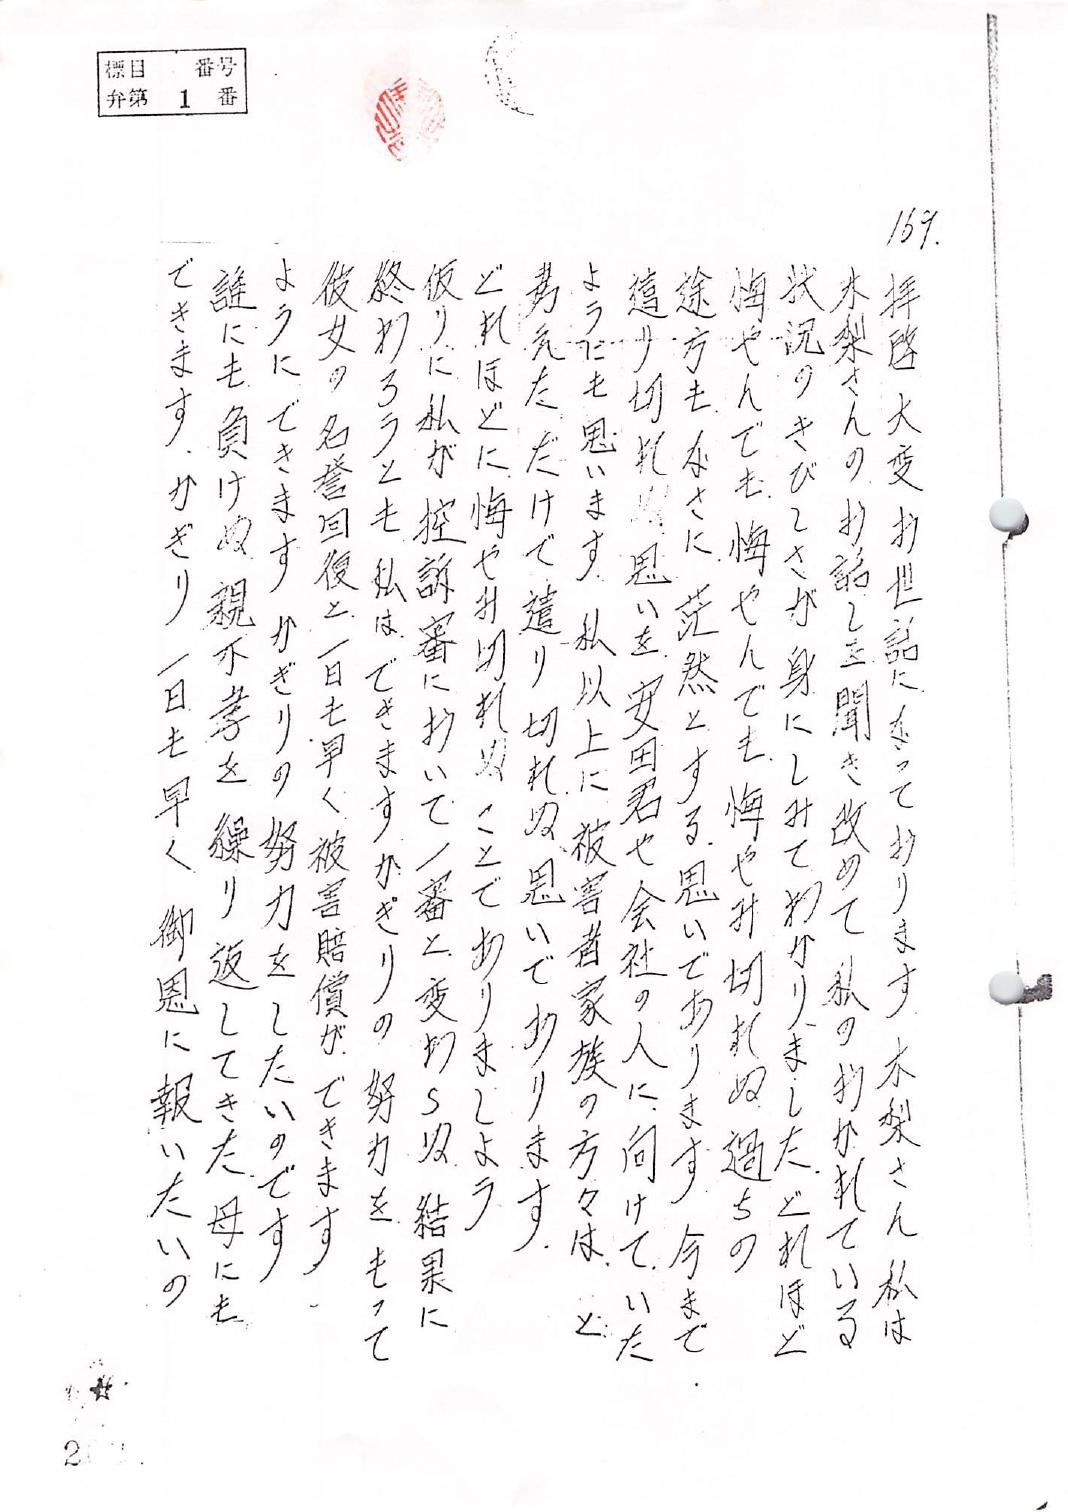 標目 番号
弁第 1 番
169.
拝啓 大変お世話になっております 木梨さん 私は
木梨さんのお話しを聞き改めて 私のおかれている
状況のきびしさが身にしみてわかりました。どれほど
悔やんでも、悔やんでも、悔やみ切れぬ過ちの
途方もなさに、茫然とする、思いであります 今まで
遣り切れぬ思いを安田君や会社の人に、向けて、いた
ようにも思います。私以上に被害者家族の方々は、と
考えた、だけで遣り切れぬ思いであります。
どれほどに、悔やみ切れぬことでありましよう
仮りに私が控訴審において一審と変わらぬ結果に
終わろうとも私は、できますかぎりの努力をもって
彼女の名誉回復と一日も早く被害賠償が、できます
ようにできます かぎりの努力をしたいのです
誰にも負けぬ親不孝を繰り返してきた母にも
できます、かぎり 一日も早く 御恩に報いたいの
2